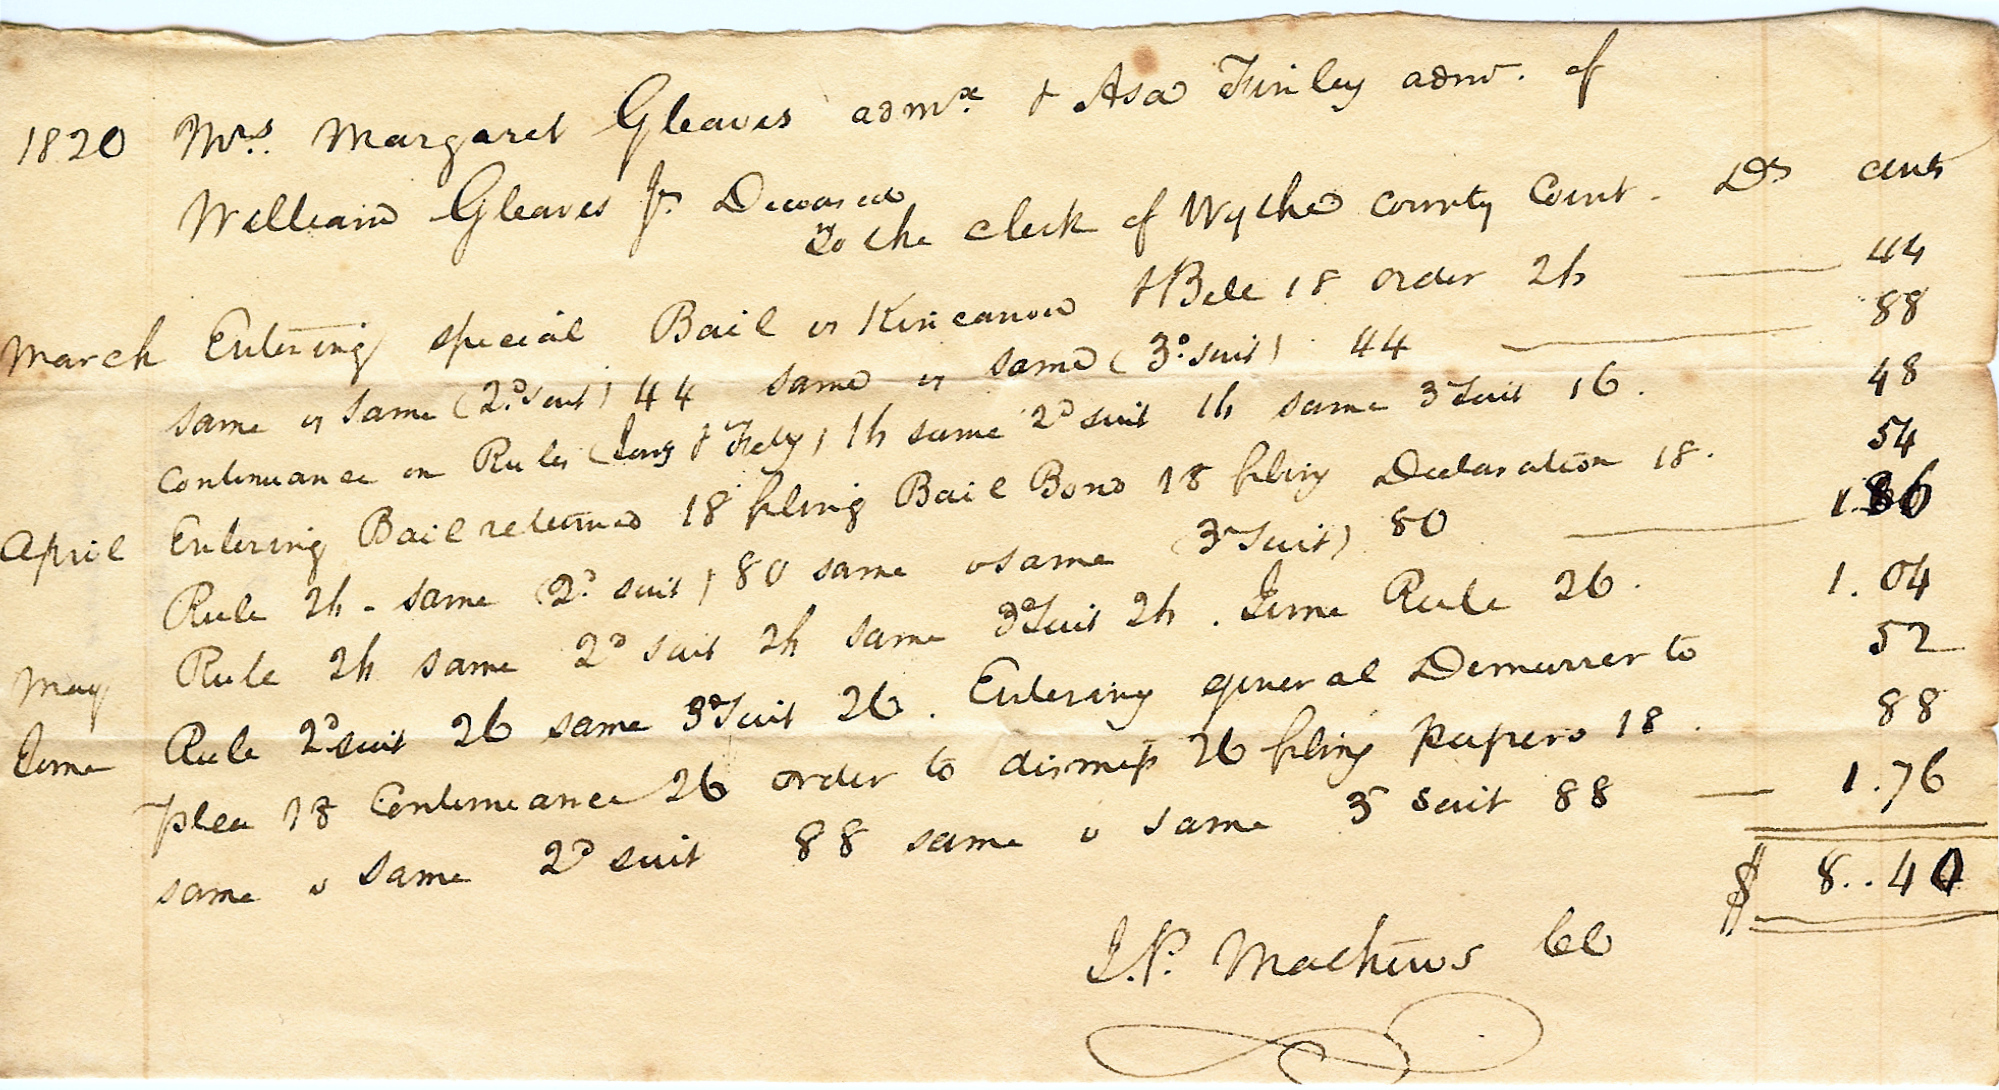 1820 Mrs. Margaret Gleaves admx. & Asa Finley admr. of
William Gleaves Jr. Deceased
To the clerk of Wythe county Court. Ds cents
March Entering special Bail vs Kincannon & Bell 18 order 26 44
same vs same (2d. suit) 44 same vs same (3d. suit) 44 88
Continuance on Rules (Jany & Feby) 16 same 2d suit 16 same 3d suit 16. 48
April Entering Bail returned 18 filing Bail Bond 18 filing Declaration 18. 54
Rule 26 - same (2d. suit) 80 same vs same (3d suit) 80 1.86
May Rule 26 same 2d suit 26 same 3d suit 26. June Rule 26. 1.04
June Rule 2d suit 26 same 3d suit 26. Entering general Demurrer to 52
plea 18 Continuance 26 order to dismiss 26 filing papers 18. 88
same vs same 2d suit 88 same vs same 3d suit 88 1.76
$ 8..40
J.P. Mathews CC